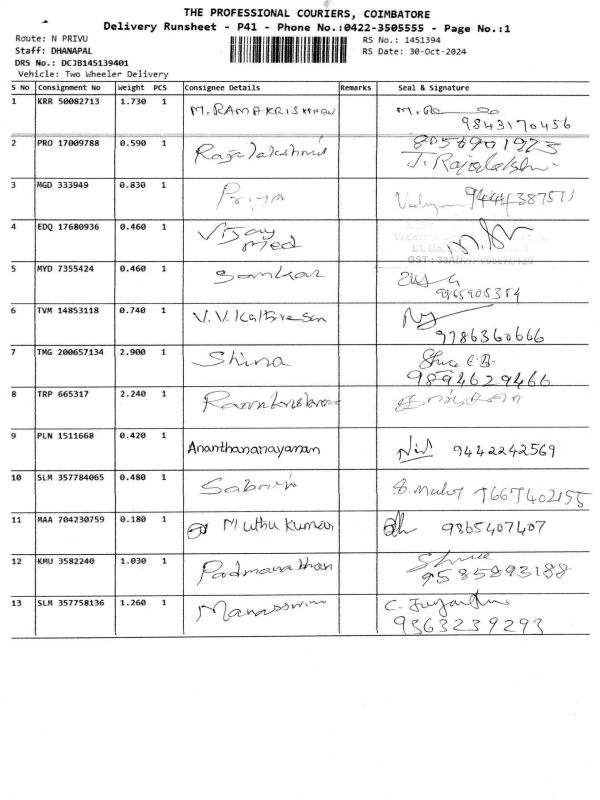 THE PROFESSIONAL COURIERS, COIMBATORE
Delivery Runsheet - P41 - Phone No.:0422-3505555 - Page No.:1
Route: N PRIVU
RS No.: 1451394
Staff: DHANAPAL
RS Date: 30-Oct-2024
DRS No.: DCJB145139401
Vehicle: Two Wheeler Delivery
S No Consignment No Weight PCS Consignee Details Remarks Seal & Signature
1 KRR 50082713 1.730 1 M.RAMAKRISHNAN
9843170456
2 PRO 17009788 0.590 1 Rajalakshmi 8056901923
J. Rajalakshmi
3 MGD 333949 0.830 1 Priya
4 EDQ 17680936 0.460 1 Vijay
Med
5 MYD 7355424 0.460 1 Sankar
6 TVM 14853118 0.740 1
9786360666
7 TMG 200657134 2.900 1 Shina
9894629466
8 TRP 665317 2.240 1 Ramakrishnan
9 PLN 1511668 0.420 1 Ananthanarayanan 9442242569
10 SLM 357784065 0.480 1 7667402155
11 MAA 704230759 0.180 1 Muthu Kumar 9865407407
12 KMU 3582240 1.030 1 Padmanathan
9585893188
13 SLM 357758136 1.260 1
9363239293